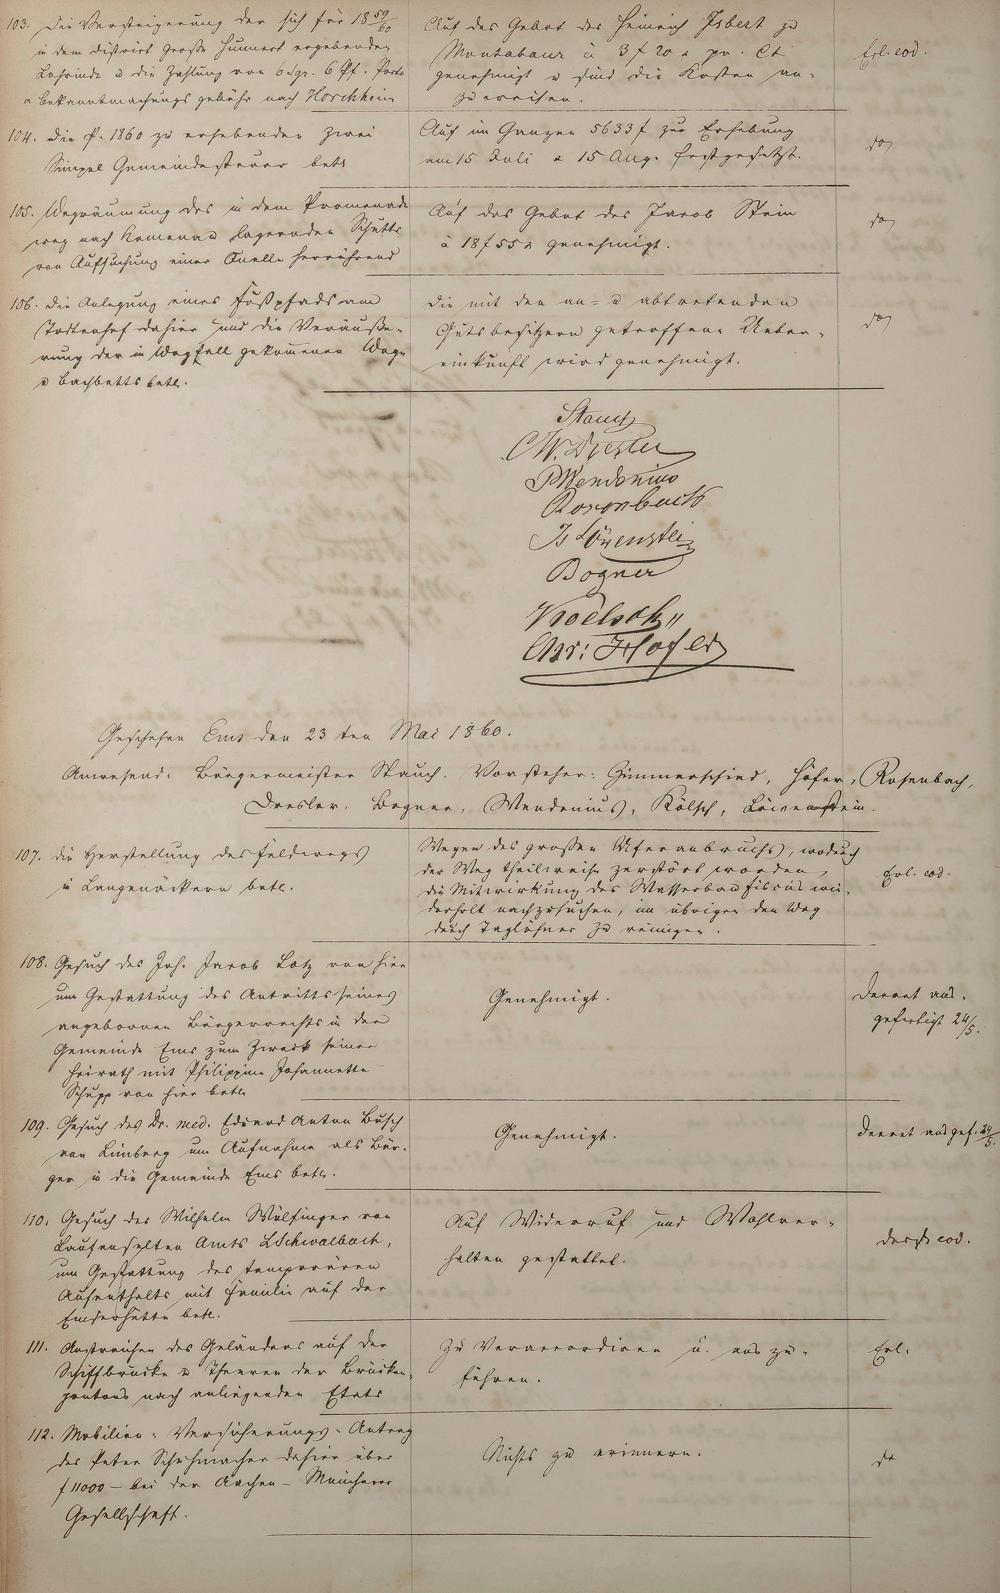 103. Die Versteigerung der sich für 18 59/60
in dem District große Hunnert ergebenden
Lohrinde u die Zahlung von 6 Sgr. 6 Pf. Porto
u Bekanntmachungsgebühr nach Horchheim
Auf das Gebot des Heinrich Isbert zu
Montabaur à 3 f 20 x pr. Ct
genehmigt u sind die Kosten an-
zuweisen.
Erl. eod.
104. Die p. 1860 zu erhebenden zwei
Simpel Gemeindesteuer betr.
Auf im Ganzen 5633 f zur Erhebung
am 15 Juli u 15 Aug. festgesetzt.
do
105. Wegräumung des in dem Promenade
weg nach Kemenau lagernden Schutts
von Aufsuchung einer Quelle herrührend
Auf das Gebot des Jacob Stein
à 18 f 55 x genehmigt.
do
106. Die Anlegung eines Fußpfads am
Todtenhof dahier und die Veräuße-
rung der in Wegfall gekommenen Wege
u Bachbetts betr.
Die mit den an- u abtretenden
Gutsbesitzern getroffene Ueber-
einkunft wird genehmigt.
do
Stauch
CW. Dresler
P Wendenius
Rosenbach
Is Löwenstein
Bogner
Koelsch
Chr: Höfer
Geschehen Ems den 23 ten Mai 1860.
Anwesend: Bürgermeister Stauch. Vorsteher: Gimmerschied, Höfer, Rosenbach,
Dresler, Bogner, Wendenius, Kölsch, Löwenstein.
107. Die Herstellung des Feldwegs
in Langenäckern betr.
Wegen des großen Uferanbruchs, wodurch
der Weg theilweise zerstört worden,
die Mitwirkung des Wasserbaufiscus wie-
derholt nachzusuchen, im übrigen den Weg
durch Taglöhner zu reinigen.
Erl. eod.
108. Gesuch des Joh. Jacob Lotz von hier
um Gestattung des Antritts seines
angebornen Bürgerrechts in der
Gemeinde Ems zum Zweck seiner
Heirath mit Philippine Johannette
Schupp von hier betr.
Genehmigt.
Decret aus-
gefertigt 24/5.
109. Gesuch des Dr. med. Eduard Anton Busch
von Limburg um Aufnahme als Bür-
ger in die Gemeinde Ems betr.
Genehmigt.
Decret ausgef. 24/5.
110. Gesuch des Wilhelm Wölfinger von
Laufenselten Amts LSchwalbach,
um Gestattung des temporären
Aufenthalts mit Familie auf der
Emserhütte betr.
Auf Widerruf und Wohlver-
halten gestattet.
eod.
111. Anstreichen des Geländers auf der
Schiffbrücke u Theeren der Brücken-
pontons nach anliegenden Etats
Zu veraccordiren u. aus zu-
führen.
Erl.
112. Mobilien-Versicherungs-Antrag
des Peter Schuhmacher dahier über
f 11000 – bei der Aachen-Münchener
Gesellschaft.
Nichts zu erinnern.
do